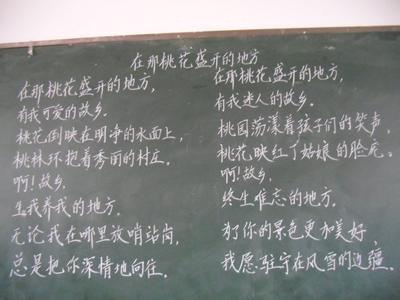 在那桃花盛开的地方
在那桃花盛开的地方，
有我可爱的故乡。
桃花倒映在明净的水面上，
桃林环抱着秀丽的村庄。
啊！故乡，
生我养我的地方。
无论我在哪里放哨站岗，
总是把你深情地向往。
在那桃花盛开的地方，
有我迷人的故乡。
桃园荡漾着孩子们的笑声，
桃花映红了姑娘的脸庞。
啊！故乡，
终生难忘的地方。
为了你的景色更加美好，
我愿驻守在风雪的边疆。